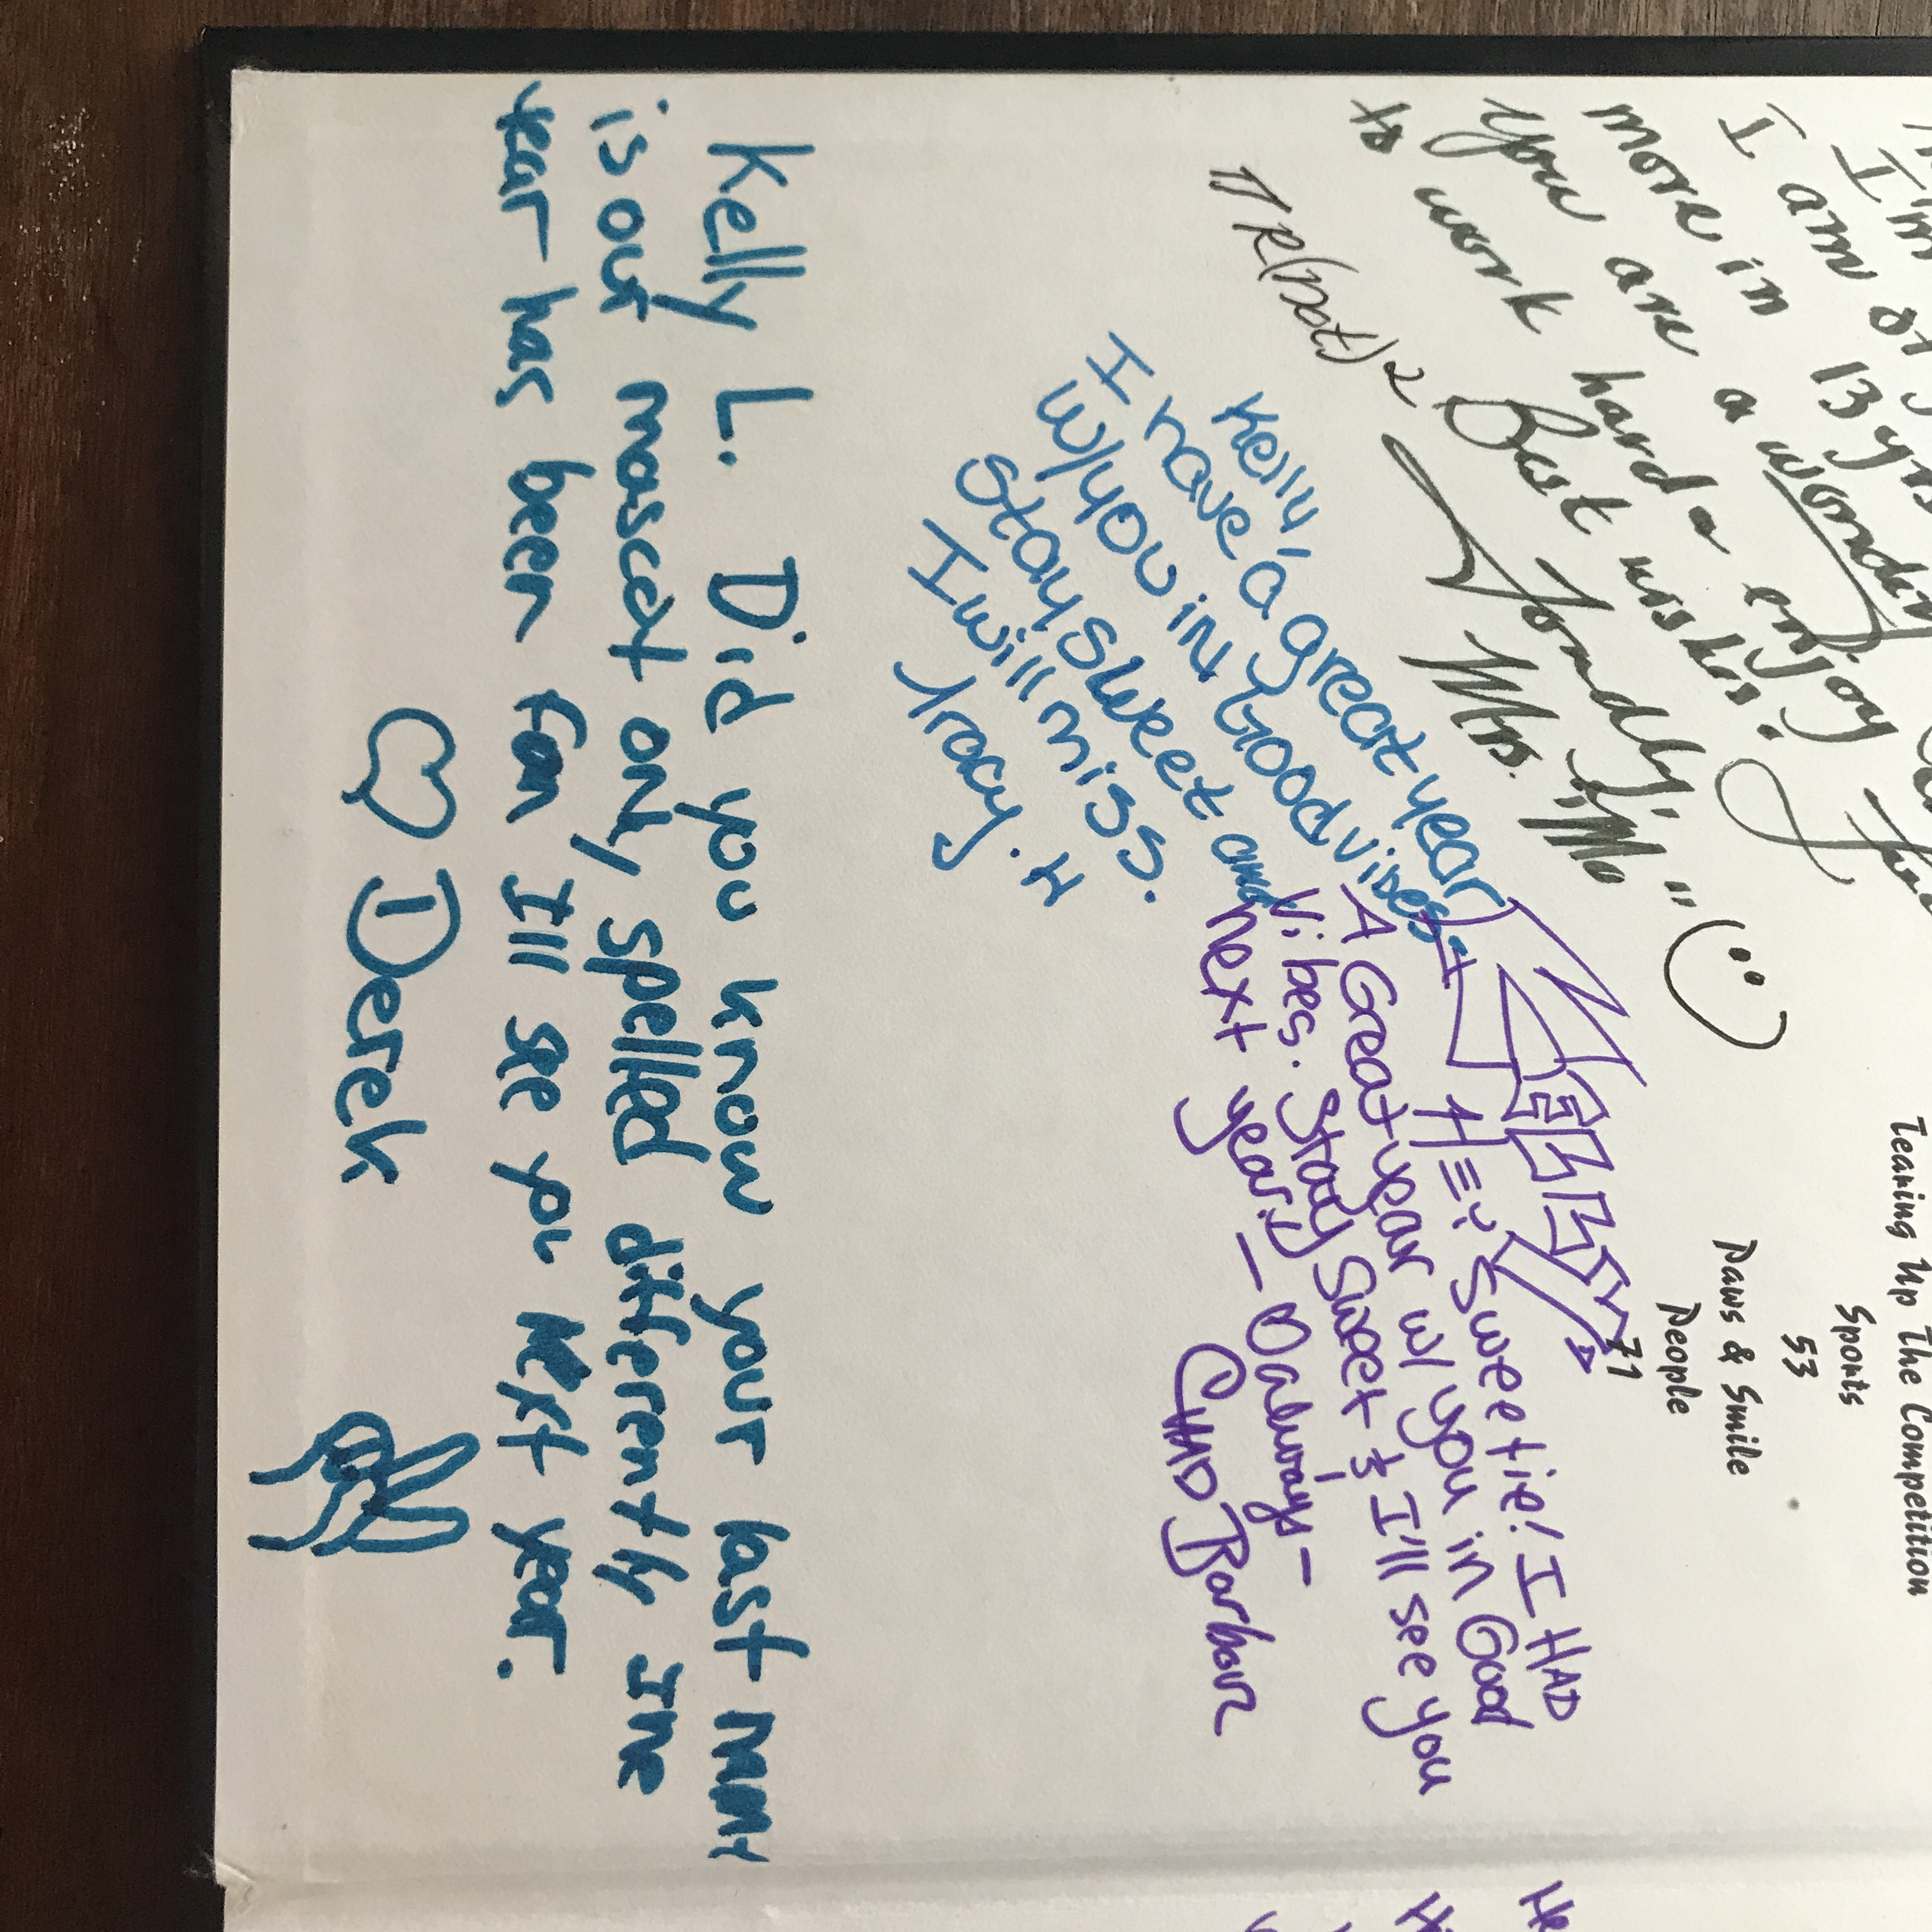 Tearing Up The Competition
Sports
53
Paws & Smile
People
71
I'm
I am
more in 13 yrs
You are a
to work hard & enjoy
Best wishes!
Fondly,
Mrs. "Mo"
Kelly,
I have a great year
w/you in Good vibes
Stay sweet and
I will miss.
Tracy. H
KELLY
Hey Sweetie! I HAD
A Great year w/ you in Good
Vibes. Stay Sweet & I'll see you
next year! — always -
CHAD Barbour
Kelly L. Did you know your last name
is our mascot only spelled differently The
year has been fun Ill see you next year.
Derek